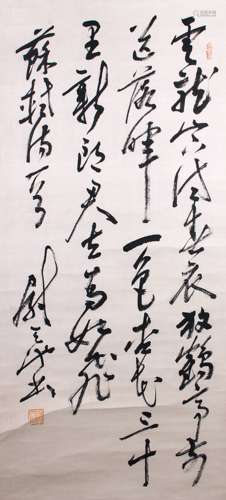 雲龍山下試春衣放鶴亭前
送落暉一色杏花三十
里新郎君去馬如飛
蘇軾詩一首 尉天池書